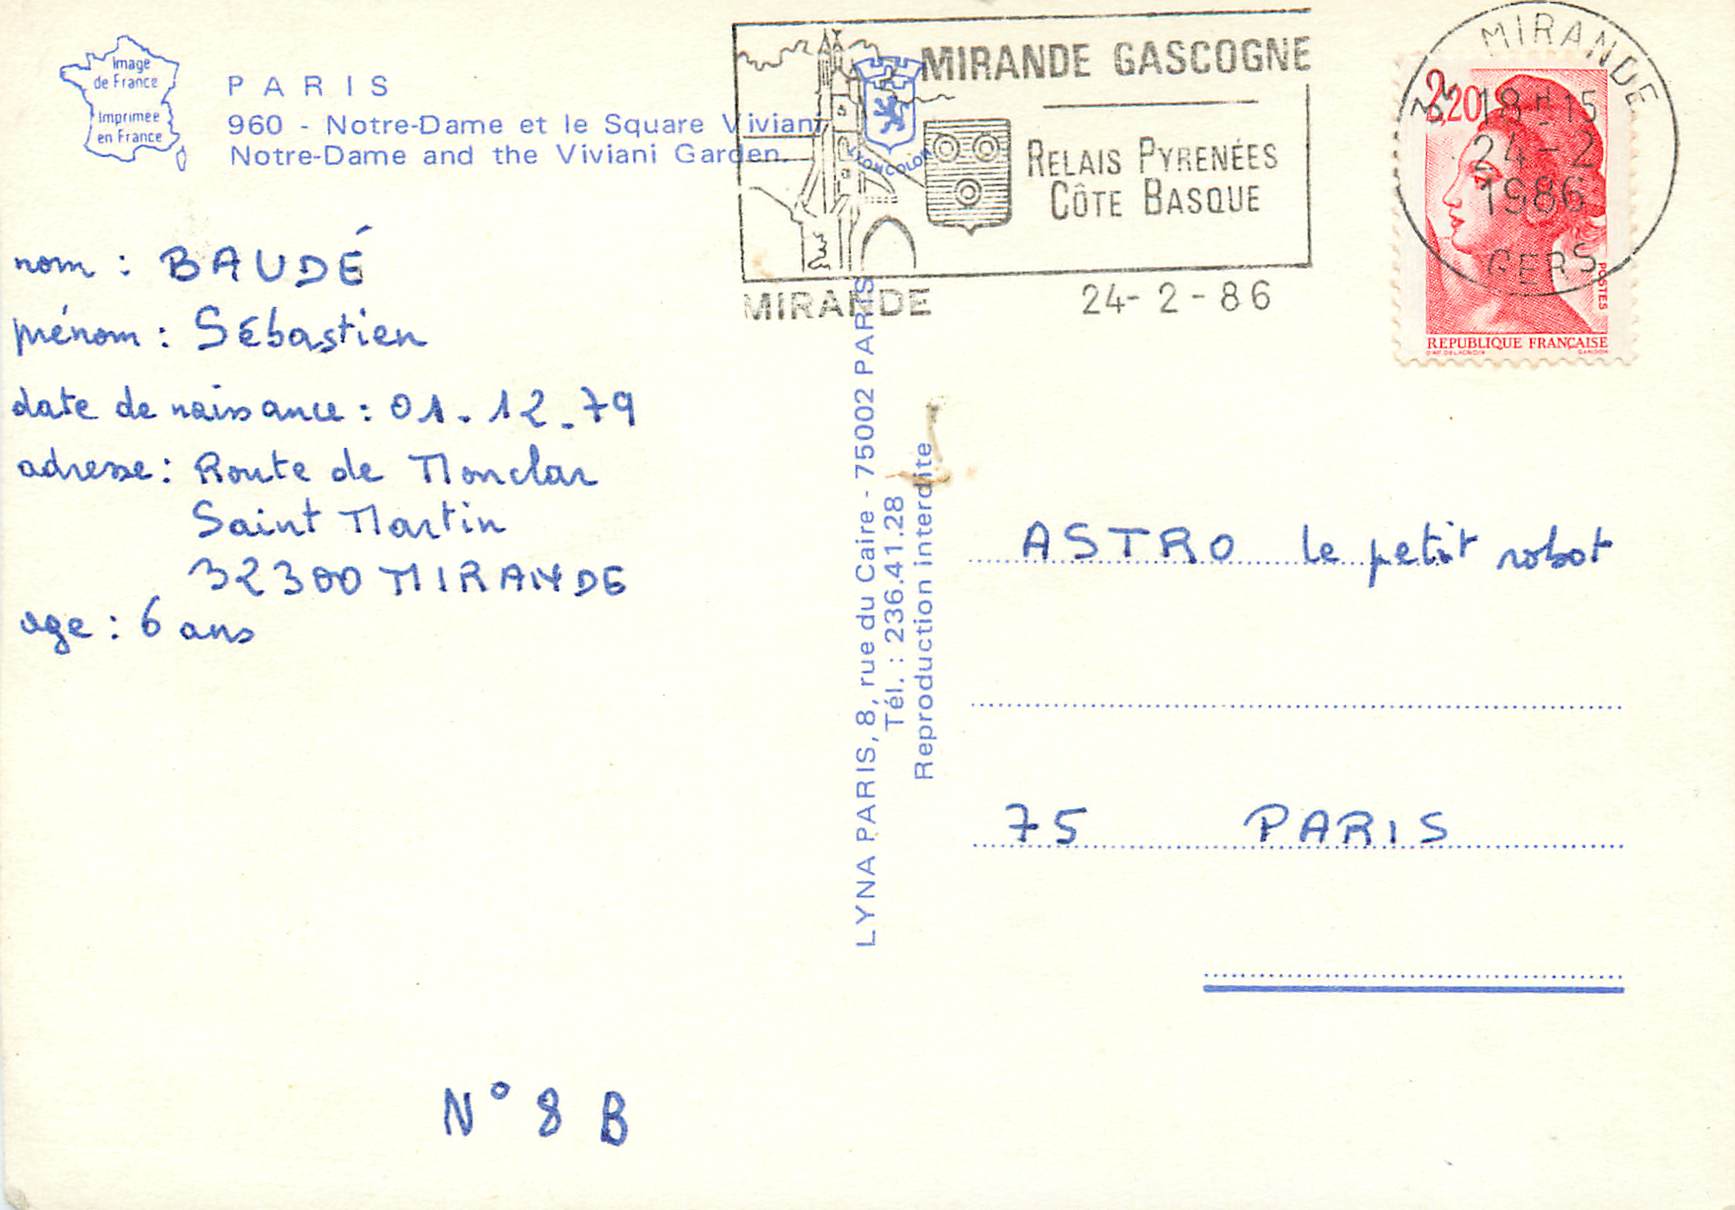 Image
de France
Imprimée
en France
PARIS
960 - Notre-Dame et le Square Viviani
Notre-Dame and the Viviani Garden.
LYONCOLOR
MIRANDE GASCOGNE
RELAIS PYRENÉES
CÔTE BASQUE
MIRANDE
24-2-86
MIRANDE
18H15
24-2
1986
GERS
2,20
POSTES
REPUBLIQUE FRANÇAISE
nom : BAUDÉ
prénom : Sébastien
date de naissance : 01.12.79
adresse : Route de Monclar
Saint Martin
32300 MIRANDE
age : 6 ans
N° 8 B
LYNA PARIS, 8, rue du Caire - 75002 PARIS
Tél. : 236.41.28
Reproduction interdite
ASTRO le petit robot
75 PARIS